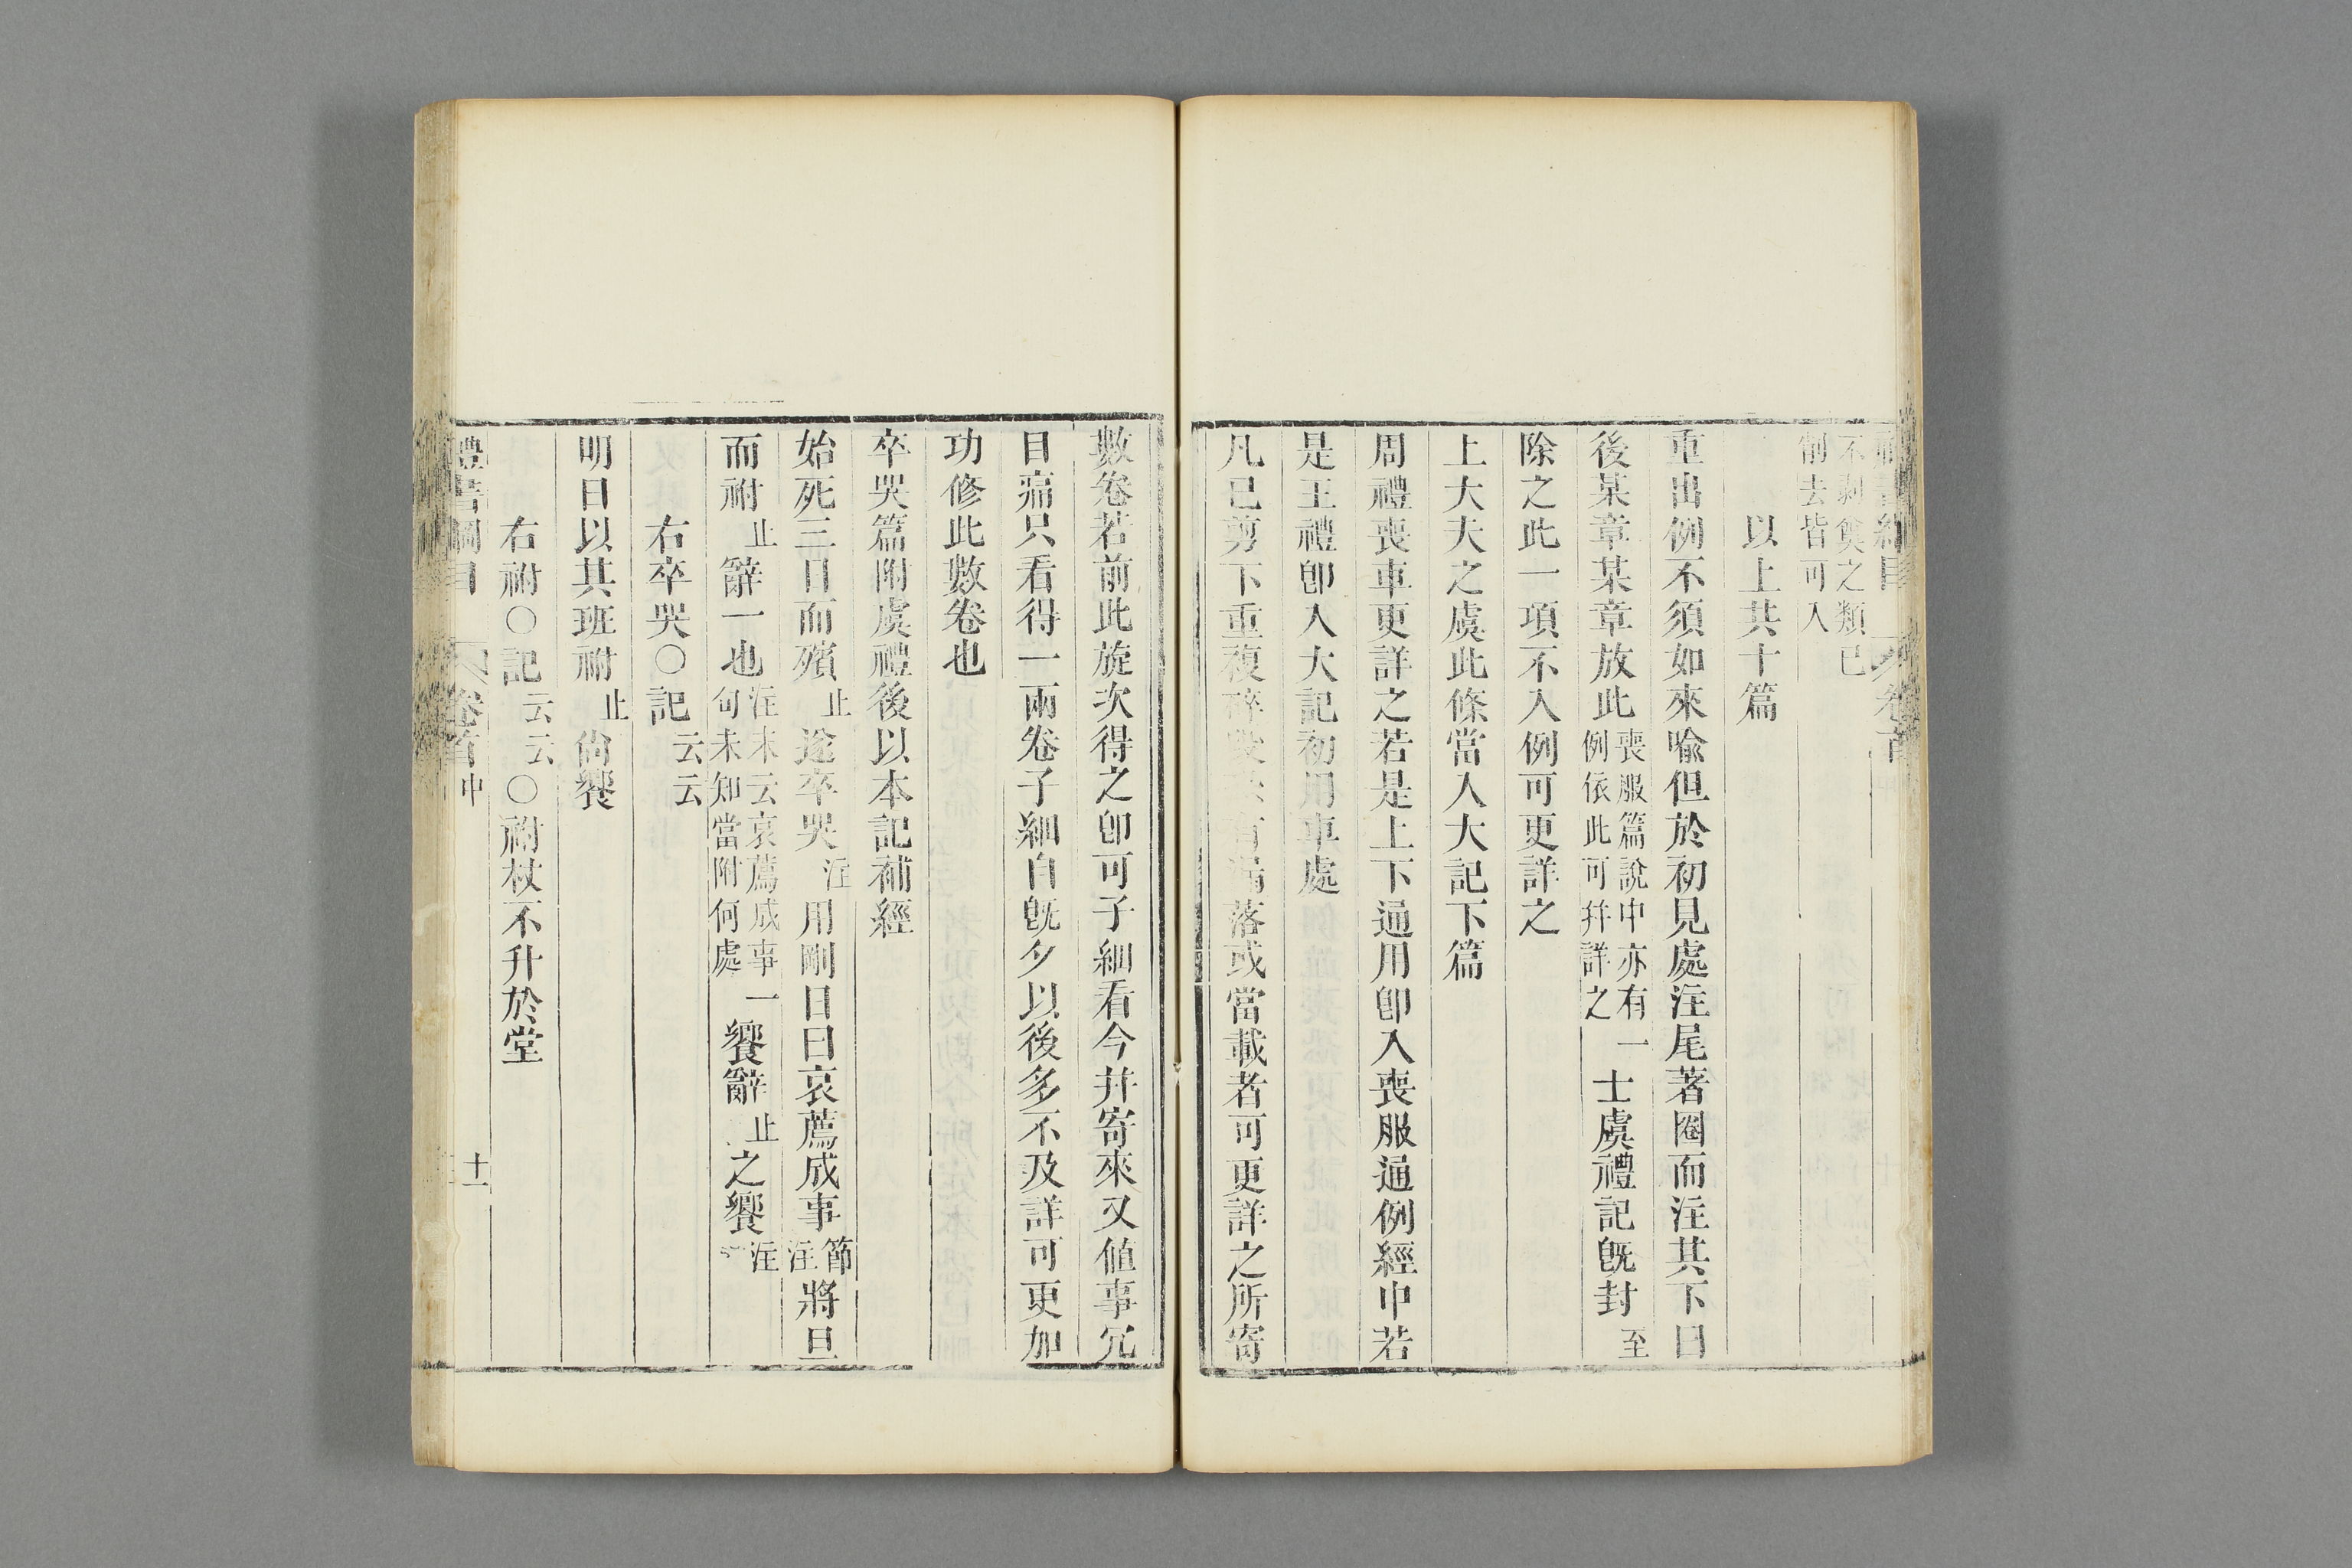 不剥奠之類已
削去皆可入
以上共十篇
重出例不須如來喩但於初見處注尾著圈而注其下曰
後某章某章放此喪服篇說中亦有例依此可幷詳之一士虞禮記旣封至
除之此一項不入例可更詳之
上大夫之虞此條當入大記下篇
周禮喪車更詳之若是上下通用卽入喪服通例經中若
是王禮卽入大記初用車處
凡已剪下重複落或當載者可更詳之所寄
數卷若前此旋次得之卽可子細看今幷寄來又値事冗
目痛只看得一兩卷子細自旣夕以後多不及詳可更加
功修此數卷也
卒哭篇附虞禮後以本記補經
始死三日而殯止遂卒哭注用剛日曰哀薦成事節注將旦
而祔止辭一也注末云哀薦成事句未知當附何處一饗辭止之饗注
右卒哭〇記云云
明日以其班祔止尙饗
右祔〇記云云〇祔杖不升於堂
禮書綱目 卷首中 十一